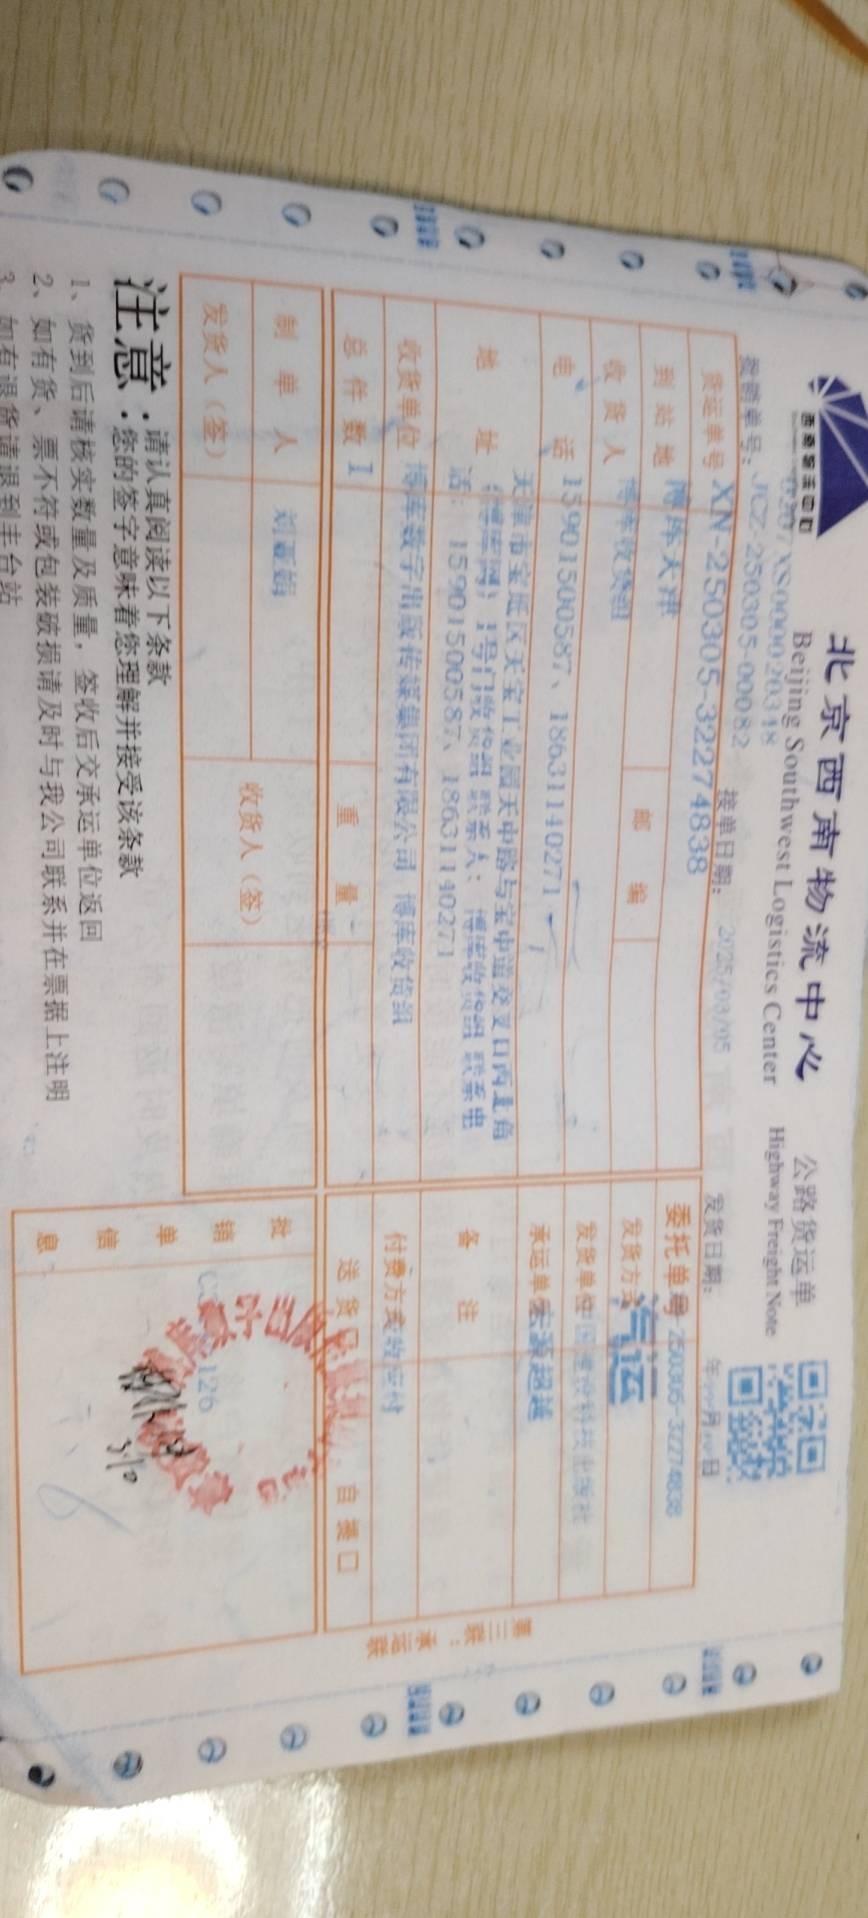 西南物流中心
北京西南物流中心 公路货运单
Beijing Southwest Logistics Center Highway Freight Note
XS0000020348
JCZ-250305-00082 接单日期: 2025/03/05 发货日期: 年 月 日
货运单号 XN-250305-32274838 委托单号 250305-32274838
到站地 博库天津 发货方式 汽运
收货人 博库收货组 邮编 发货单位
电话 15901500587、18631140271 承运单位 宏源超越
地址 天津市宝坻区天宝工业园天中路与宝中道交叉口西北角
(博库网) 1号门收货组 联系人: 博库收货组 联系电
话: 15901500587、18631140271
备注
收货单位 博库数字出版传媒集团有限公司 博库收货组 付费方式
总件数 1 重量 送货口 自提口
制单人 刘亚娟 收货人(签)
发货人(签)
批销单信息
126
3/10
第三联:承运联
注意: 请认真阅读以下条款
您的签字意味着您理解并接受该条款
1、货到后请核实数量及质量,签收后交承运单位返回
2、如有货、票不符或包装破损请及时与我公司联系并在票据上注明
3、如有退货请退到丰台站